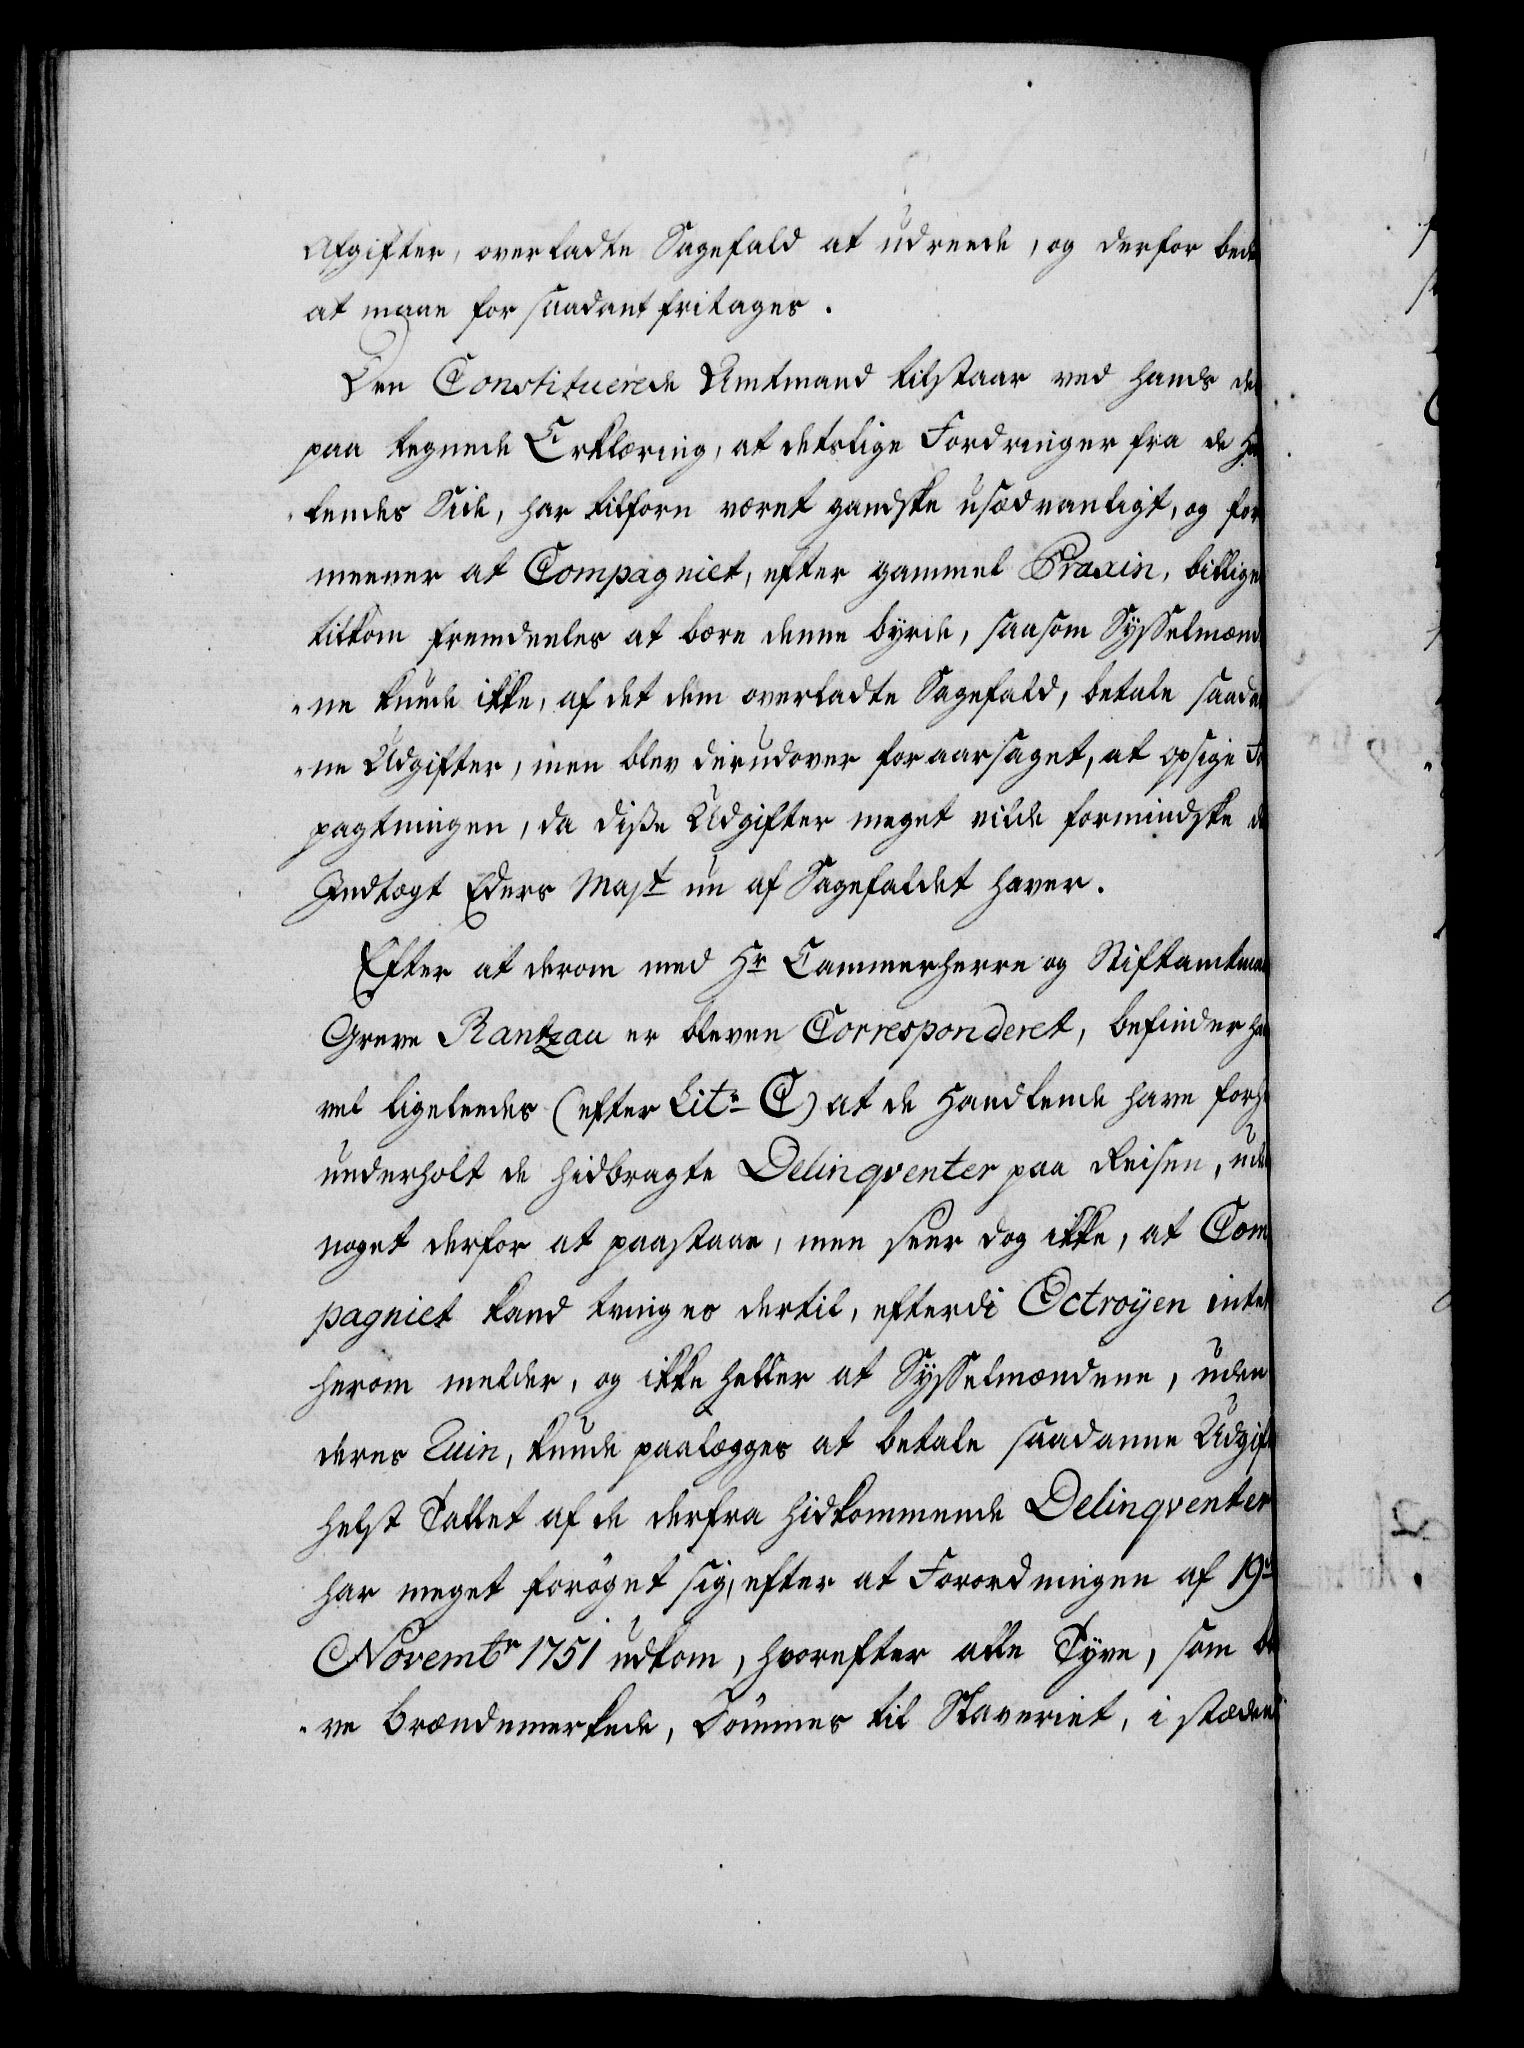 Afgifter, overladte Sagefald at udreede, og derfor bede
at maae for saadant fritages.
Den Constituerede Amtmand tilstaar ved hands der
paa tegnede Erklæring, at detslige Fordringer fra de Ha
lendes Side, har tilforn været gandske usædvanligt, og for
meener at Compagniet, efter gammel Praxin, billigen
tilkom fremdeeles at bære denne byrde, saasom Sysselmænd
ne kunde ikke, af det dem overladte Sagefald, betale saadan
ne Udgifter, men blev derudover foraarsaget, at opsige For
pagtningen, da disse Udgifter meget vilde formindske den
Indtægt Eders Majt nu af Sagefaldet haver.
Efter at derom med Hr Cammerherre og Stiftamtmand
Greve Rantzau er bleven Corresponderet, befinder han
vel ligeleedes (efter Litr C) at de Handlende have forhen
underholt de hidbragte Delinqventer paa Reisen, uden
noget derfor at paastaae, men seer dog ikke, at Com
pagniet kand tvinges dertil, efterdi Octroyen intet
herom melder, og ikke heller at Sysselmændene, uden
deres Ruin, kunde paalægges at betale saadanne Udgifter
helst Tallet af de derfra hidkommende Delinqventer
har meget forøget sig, efter at Forordningen af 19de
Novembr 1751 udkom, hvorefter alle Tyve, som bl
ve brændemerkede, Dømmes til Slaveriet, i stæden